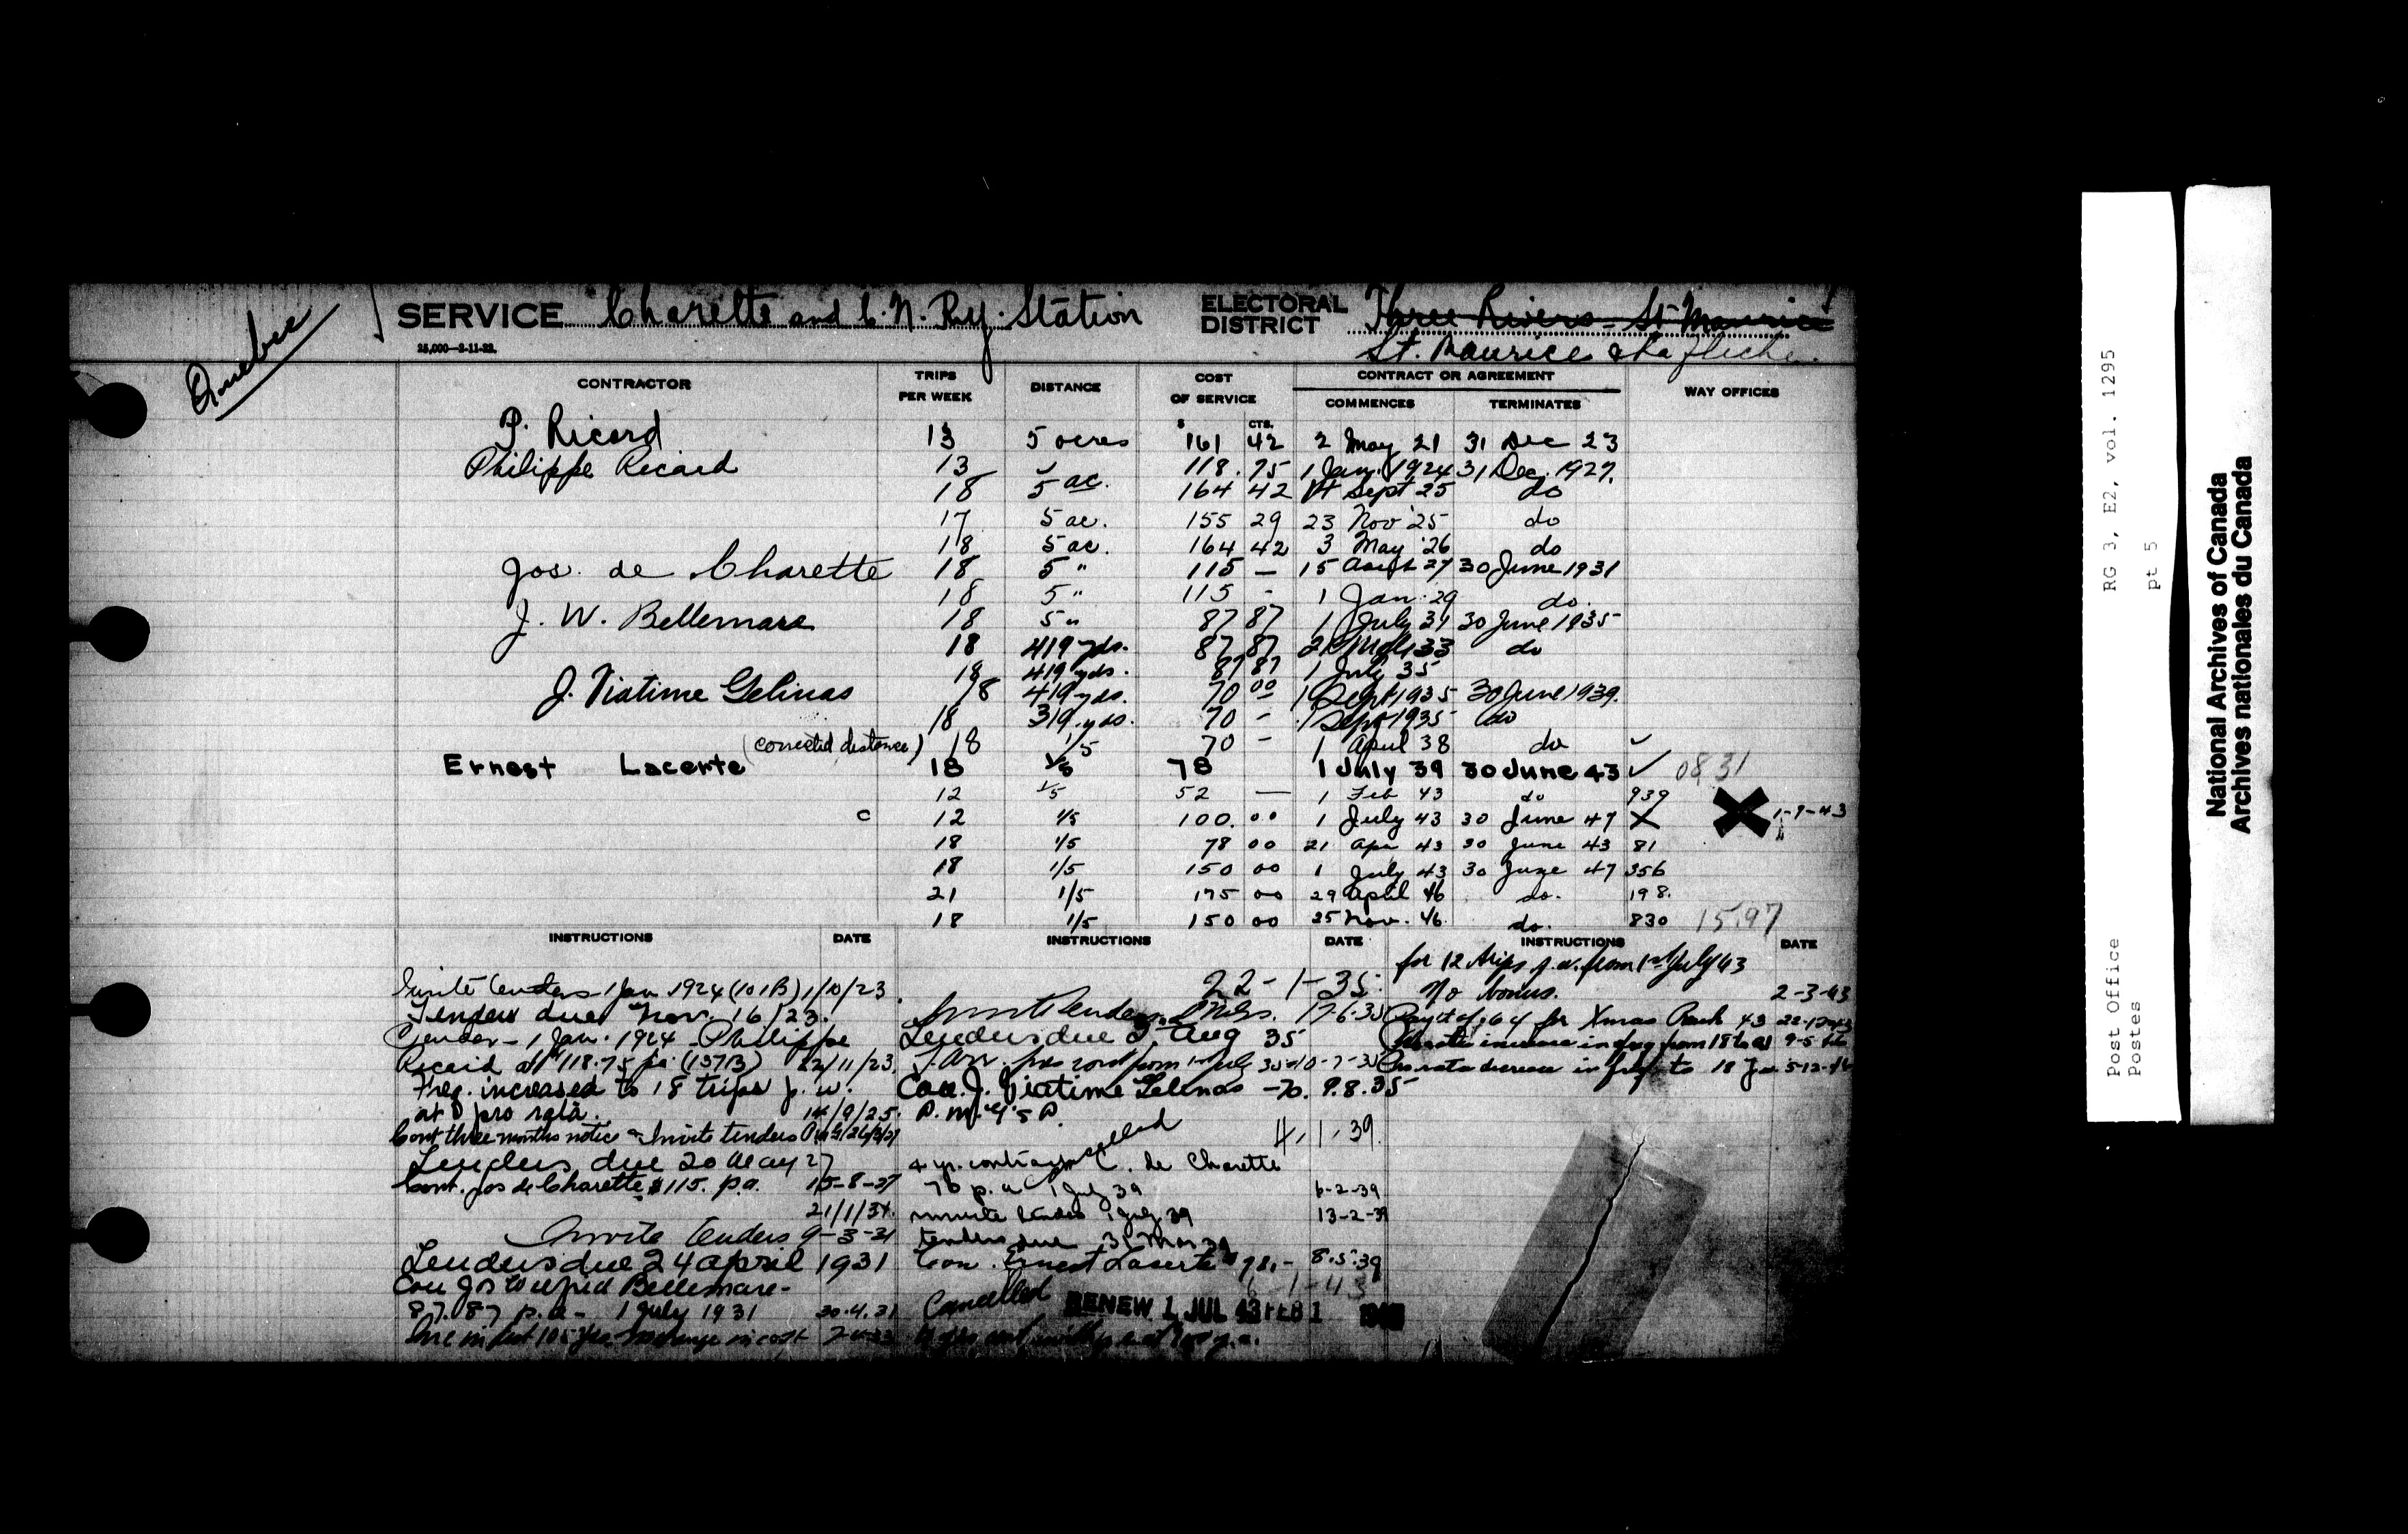 Quebec
SERVICE Charette and C.N. Ry. Station
25,000—3-11-22.
ELECTORAL DISTRICT Three Rivers - St Maurice
St. Maurice & Lafleche.
CONTRACTOR TRIPS PER WEEK DISTANCE COST OF SERVICE CONTRACT OR AGREEMENT WAY OFFICES
$ CTS. COMMENCES TERMINATES
P. Ricard 13 5 acres 161 42 2 May 21 31 Dec 23
Philippe Ricard 13 ✓ 118.75 1 Jan. 1924 31 Dec. 1927.
18 5 ac. 164 42 14 Sept 25 do
17 5 ac. 155 29 23 Nov '25 do
18 5 ac. 164 42 3 May '26 do
Jos. de Charette 18 5 " 115 — 15 27 30 June 1931
18 5 " 115 - 1 Jan. 29 do.
J. W. Bellemare 18 5 " 87 87 1 July 31 30 June 1935
18 419 yds. 87 87 33 do
18 419 yds. 87 87 1 July 35
J. Viatime Gelinas 18 419 yds. 70 00 1 Sept 1935 30 June 1939.
18 319 yds. 70 - 1 Sept 1935 do
(corrected distance) 18 1/5 70 - 1 April 38 do ✓
Ernest Lacerte 18 1/5 78 1 July 39 30 June 43 ✓ 0831
12 1/5 52 — 1 Feb 43 do 939
c 12 1/5 100.00 1 July 43 30 June 47 X X 1-9-43
18 1/5 78 00 21 Apr 43 30 June 43 81
18 1/5 150 00 1 July 43 30 June 47 356
21 1/5 175 00 29 April 46 do. 198.
18 1/5 150 00 25 Nov. 46. do. 830 1597
INSTRUCTIONS DATE INSTRUCTIONS DATE INSTRUCTIONS DATE
Invite tenders 1 Jan 1924 (101B) 1/10/23
Tenders due Nov. 16/23.
Tender - 1 Jan. 1924 - Philippe
Ricard at $118.75 pa (157B) 22/11/23
Freq. increased to 18 trips p. w.
at pro rata. 14/9/25.
Cont three months notice & Invite tenders
Tenders due 20 May 27
Cont. Jos de Charette $115. p.a. 15-8-27
21/1/31.
Invite tenders 9-3-31
Tenders due 24 April 1931
Con Jos Wilfrid Bellemare -
87.87 p.a - 1 July 1931 30.4.31
22-1-35.
Invite tenders 17-6-35
Tenders due 2 Aug 35
Con. J. Viatime Gelinas - 70. 9.8.35
4.1.39.
cancelled
4 yr. contract C. de Charette
p. a 1 July 39 6-2-39
invite tenders 1 July 39 13-2-39
tenders due 31 Mar 39
Con. Ernest Lacerte $78.- 8.5.39
6-1-43
Cancelled RENEW 1 JUL 43 FEB 1
for 12 trips p.w. from 1st July 43
No bonus. 2-3-43
Xmas Rush 43 22-12-43
Pro rata increase in freq from 18 to 21 9-5-46
Pro rata decrease in freq to 18 5-12-46
Post Office RG 3, E2, vol. 1295
Postes pt 5
National Archives of Canada
Archives nationales du Canada